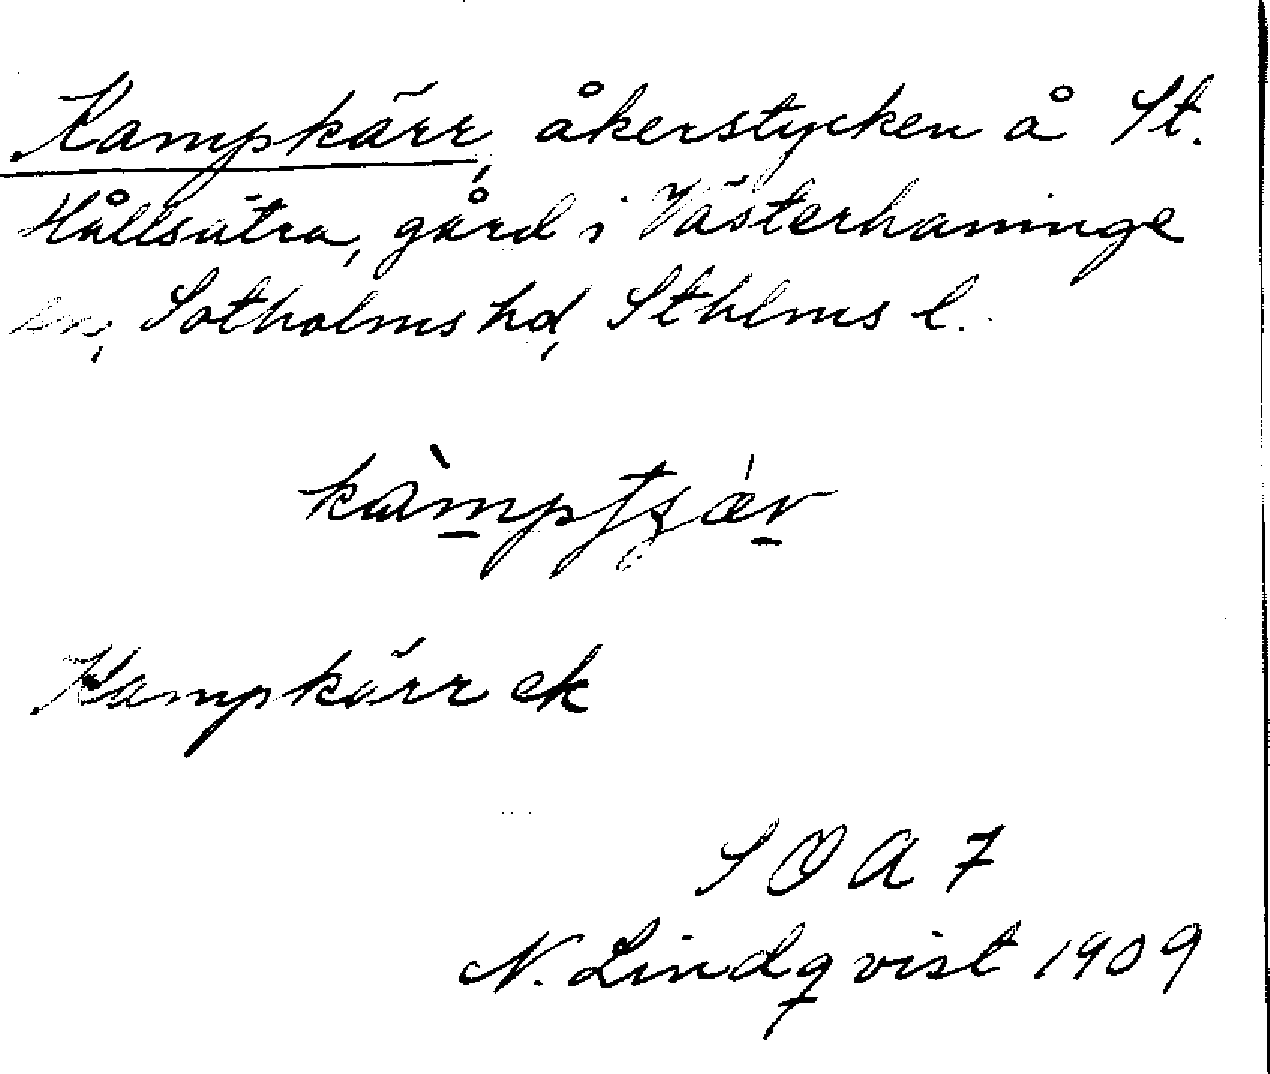 Kampkärr, åkerstycken å St.
Hållsätra, gård i Västerhaninge
sn, Sotholms hd, Sthlms l.
Kampkärr ek
SOA 7
N. Lindqvist 1909